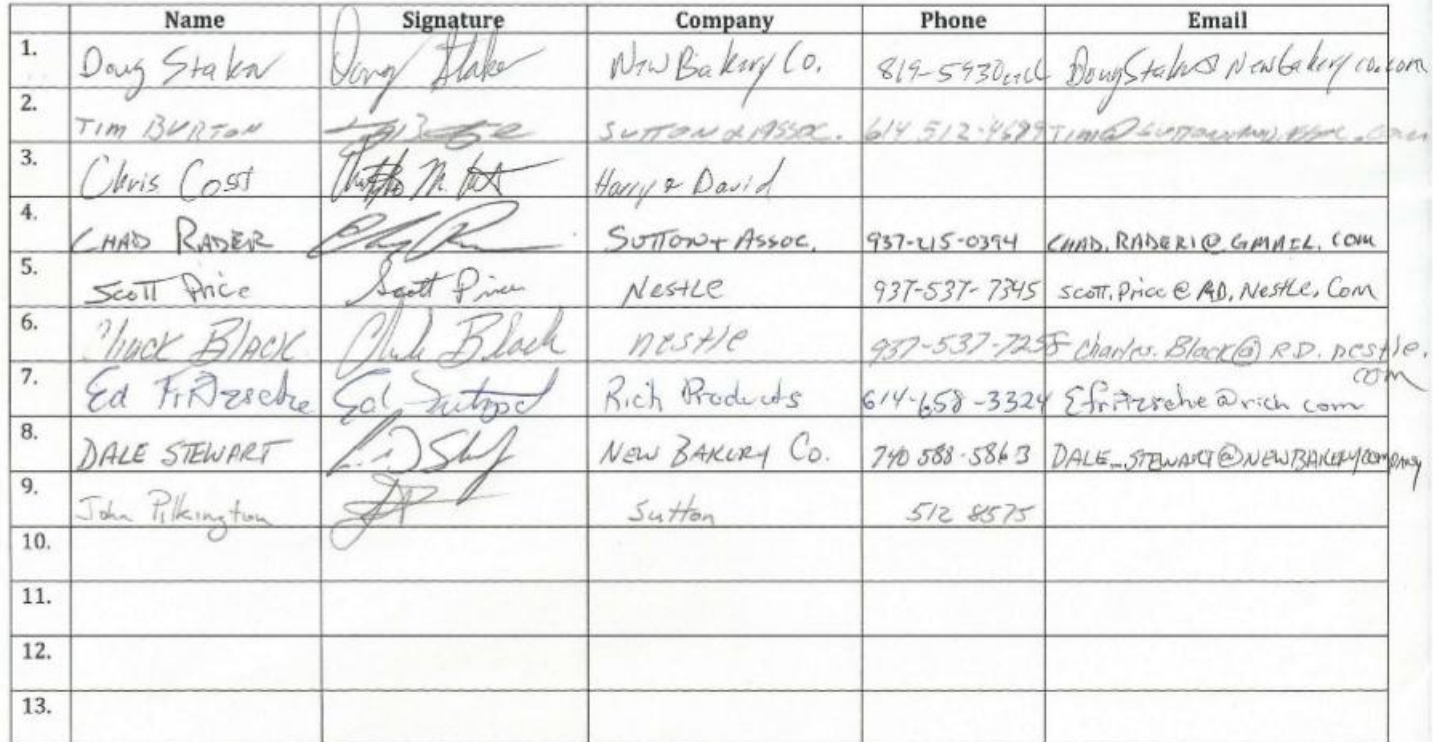 Name Signature Company Phone Email
1. Doug Staker Doug Staker New Bakery Co. 819-5930 cell
2. TIM BURTON SUTTON & ASSOC. 614 512-4699
3. Chris Cost Harry & David
4. CHAD RADER SUTTON + ASSOC. 937-215-0394 CHAD.RADER1@GMAIL.COM
5. Scott Price Scott Price Nestle 937-537-7345 Scott.Price@RD.Nestle.Com
6. Chuck BLACK Chuck Black nestle 937-537-7255 Charles.Black@RD.nestle.
com
7. Ed Fritzsche Ed Rich Products 614-658-3324 Efritzsche@rich com
8. DALE STEWART NEW BAKERY CO. 740 588-5863 DALE_STEWART@NEWBAKERYCOMPANY
9. John Pilkington Sutton 512 8575
10.
11.
12.
13.